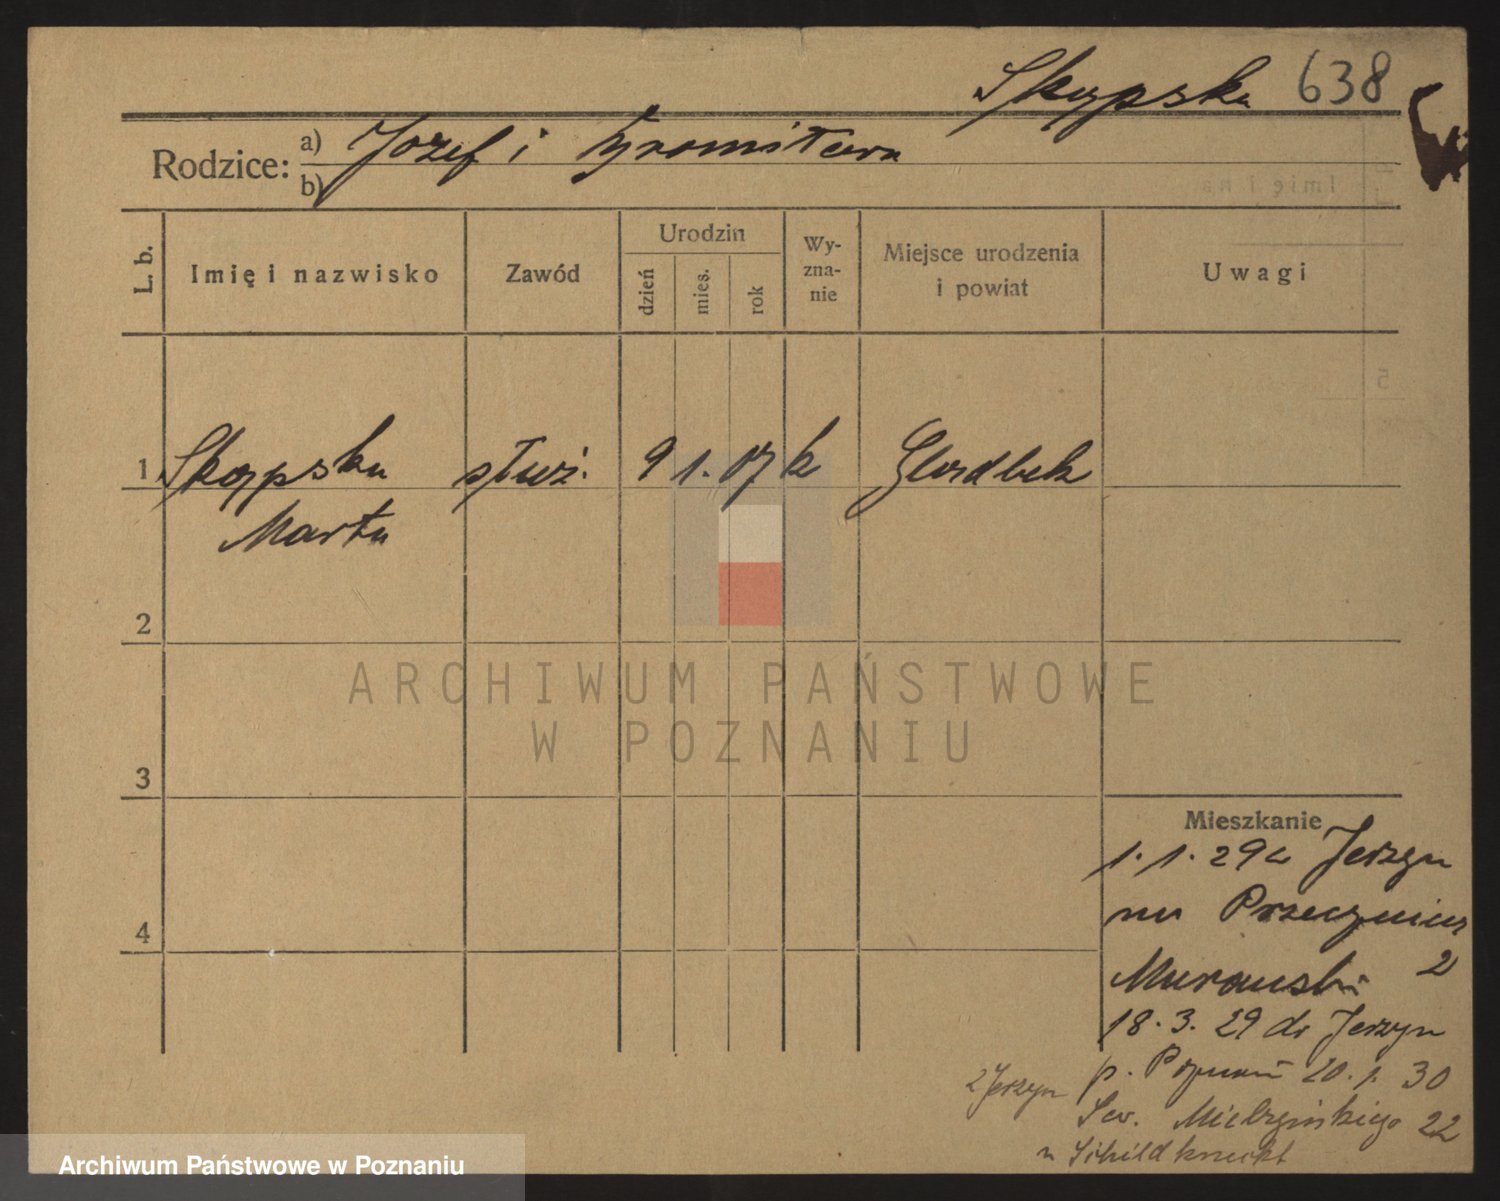 Skypska 638
Rodzice: a) Jozef i
b)
L. b. Imię i nazwisko Zawód Urodzin dzień mies. rok Wyznanie Miejsce urodzenia i powiat Uwagi
1 Skypska służ. 9 1. 07 k Gladbek
Marta
2
3
4
Mieszkanie
1. 1. 29 z Jerzyn
Przecznica
Murawski 2
18. 3. 29 do Jerzyn
p. Poznań 20. 1. 30
z Jerzyn
Sew. Mielżyńskiego 22
u Schildknecht
ARCHIWUM PAŃSTWOWE
W POZNANIU
Archiwum Państwowe w Poznaniu